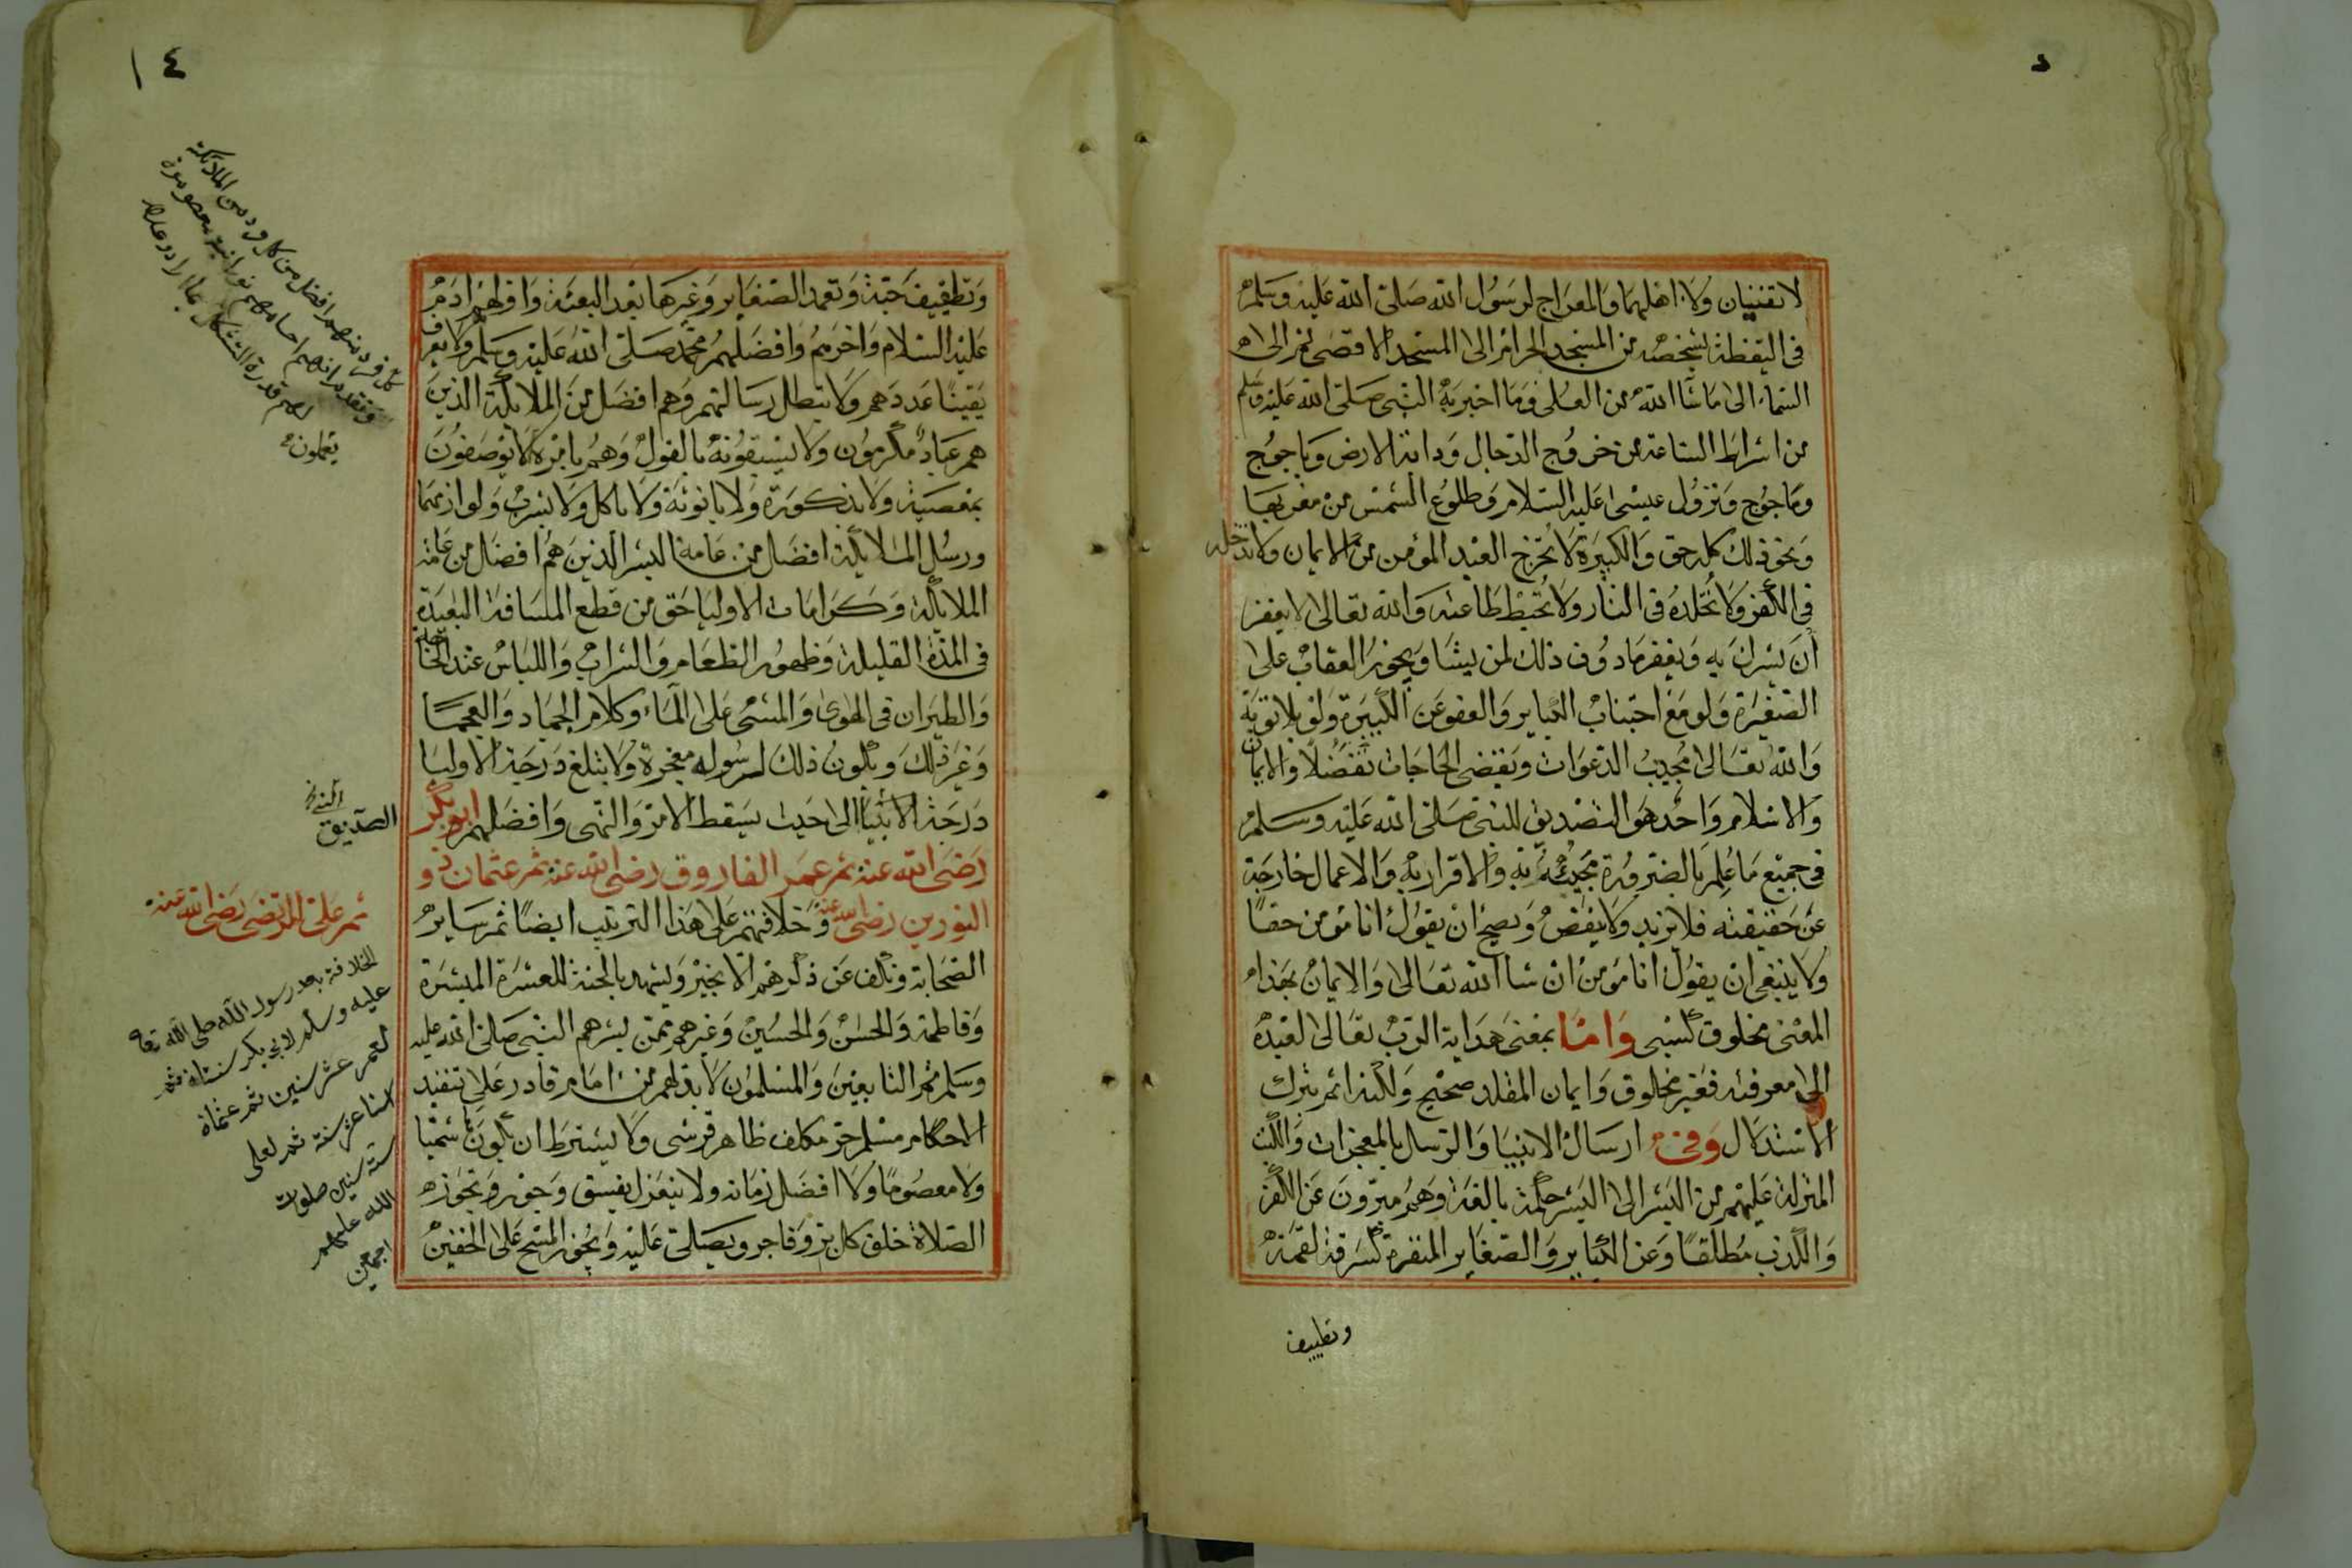 لا تفنيان ولا اهلهما والمعراج لرسول الله صلى الله عليه وسلم
فى اليقظة بشخصه من المسجد الحرام الى المسجد الاقصى ثم الى
السماء الى ما شا الله من العلى وما اخبر به النبى صلى الله عليه وسلم
من اشراط الساعة من خروج الدجال ودابة الارض وياجوج
وماجوج ونزول عيسى عليه السلام وطلوع الشمس من مغربها
ونحو ذلك كله حق والكبيرة لا تخرج العبد المؤمن من الايمان ولا تدخله
فى الكفر ولا تخلده فى النار ولا تحبط طاعته والله تعالى لا يغفر
أن يشرك به ويغفر ما دون ذلك لمن يشا ويجوز العقاب على
الصغيرة ولو مع اجتناب الكباير والعفو عن الكبيرة ولو بلا توبة
والله تعالى مجيب الدعوات ويقضى الحاجات تفضلا والايمان
والاسلام واحد هو التصديق للنبى صلى الله عليه وسلم
فى جميع ما علم بالضرورة مجيئه به والاقرار به والاعمال خارجة
عن حقيقته فلا يزيد ولا ينقص ويصح ان يقول انا مؤمن حقا
ولا ينبغى ان يقول انا مؤمن ان شا الله تعالى والايمان بهذا
المعنى مخلوق كسبى واما بمعنى هداية الرب تعالى لعبده
الى معرفته فغير مخلوق وايمان المقلد صحيح ولكنه اثم بترك
الاستدلال وفى ارسال الانبيا والرسل بالمعجزات والكتب
المنزلة عليهم من البشر الى البشر حكمة بالغة وهم مبرون عن الكفر
والكذب مطلقا وعن الكباير والصغاير المنفرة كسرقة لقمة
وتطفيف
١٤
وتطفيف حبة وتعمد الصغاير وغيرها بعد البعثة واولهم ادم
عليه السلام واخرهم وافضلهم محمد صلى الله عليه وسلم ولا يعرف
يقينا عددهم ولا تبطل رسالتهم وهم افضل من الملايكة الذين
هم عباد مكرمون ولا يسبقونه بالقول وهم بامره لا يوصفون
بمعصية ولا بذكورة ولا بانوثة ولا باكل ولا بشرب ولوازمهما
ورسل الملايكة افضل من عامة البشر الذين هم افضل من عامة
الملايكة وكرامات الاوليا حق من قطع المسافة البعيدة
فى المدة القليلة وظهور الطعام والشراب واللباس عند الحاجة
والطيران فى الهوى والمشى على الماء وكلام الجماد والعجما
وغير ذلك ويكون ذلك لرسوله معجزة ولا يبلغ درجة الاوليا
درجة الانبيا الى حيث يسقط الامر والنهى وافضلهم ابو بكر
رضى الله عنه ثم عمر الفاروق رضى الله عنه ثم عثمان ذو
النورين رضى الله عنه وخلافتهم على هذا الترتيب ايضا ثم ساير
الصحابة ونكف عن ذكرهم الا بخير ونشهد بالجنة للعشرة المبشرة
وفاطمة والحسن والحسين وغيرهم ممن بشرهم النبى صلى الله عليه
وسلم ثم التابعين والمسلمون لا بد لهم من امام قادر على تنفيذ
الاحكام مسلم حر مكلف ظاهر قرشى ولا يشترط ان يكون هاشميا
ولا معصوما ولا افضل زمانه ولا ينعزل بفسق وجور وتجوز
الصلاة خلف كل بر وفاجر ويصلى عليه ويجوز المسح على الخفين
كل فرد منهم افضل من كل فرد من الملائكة
وتقدم انهم اجسامهم نورانية معصومة
لهم قدرة التشكل بما ارادو
يعلمون
الصديق
ثم على المرتضى رضى الله عنه
الخلافة بعد رسول الله صلى الله تعالى
عليه وسلم لابى بكر سنتان ثم
لعمر عشر سنين ثم عثمان
اثنا عشر سنة ثم لعلى
ستة سنين صلوات
الله عليهم
اجمعين